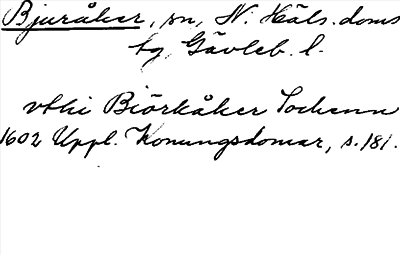 Bjuråker, sn, N. Häls. doms
tg, Gävleb. l.
vthi Biörkåker Sochenn
1602 Uppl. Konungsdomar, s. 181.